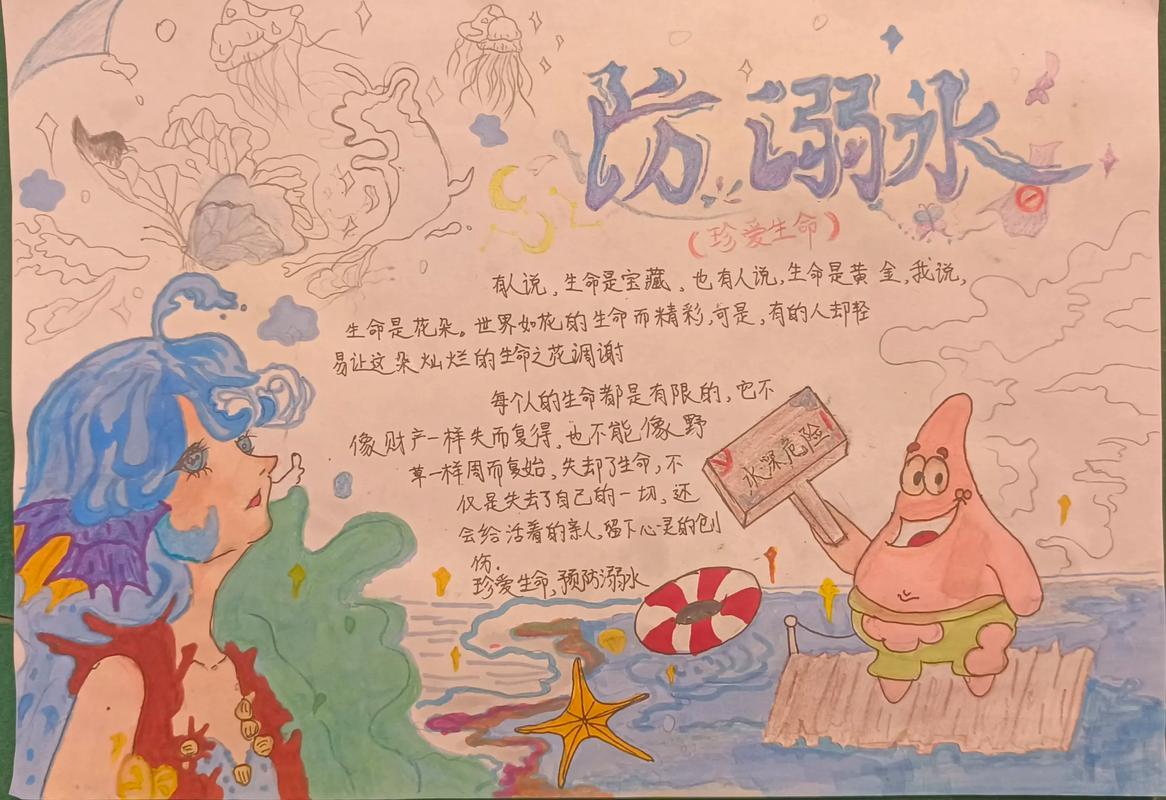 防溺水
(珍爱生命)
有人说,生命是宝藏、也有人说,生命是黄金,我说,
生命是花朵。世界如花的生命而精彩,可是,有的人却轻
易让这朵灿烂的生命之花凋谢
每个人的生命都是有限的,它不
像财产一样失而复得,也不能像野
草一样周而复始,失却了生命,不
仅是失去了自己的一切,还
会给活着的亲人,留下心灵的创
伤.
珍爱生命,预防溺水
水深危险